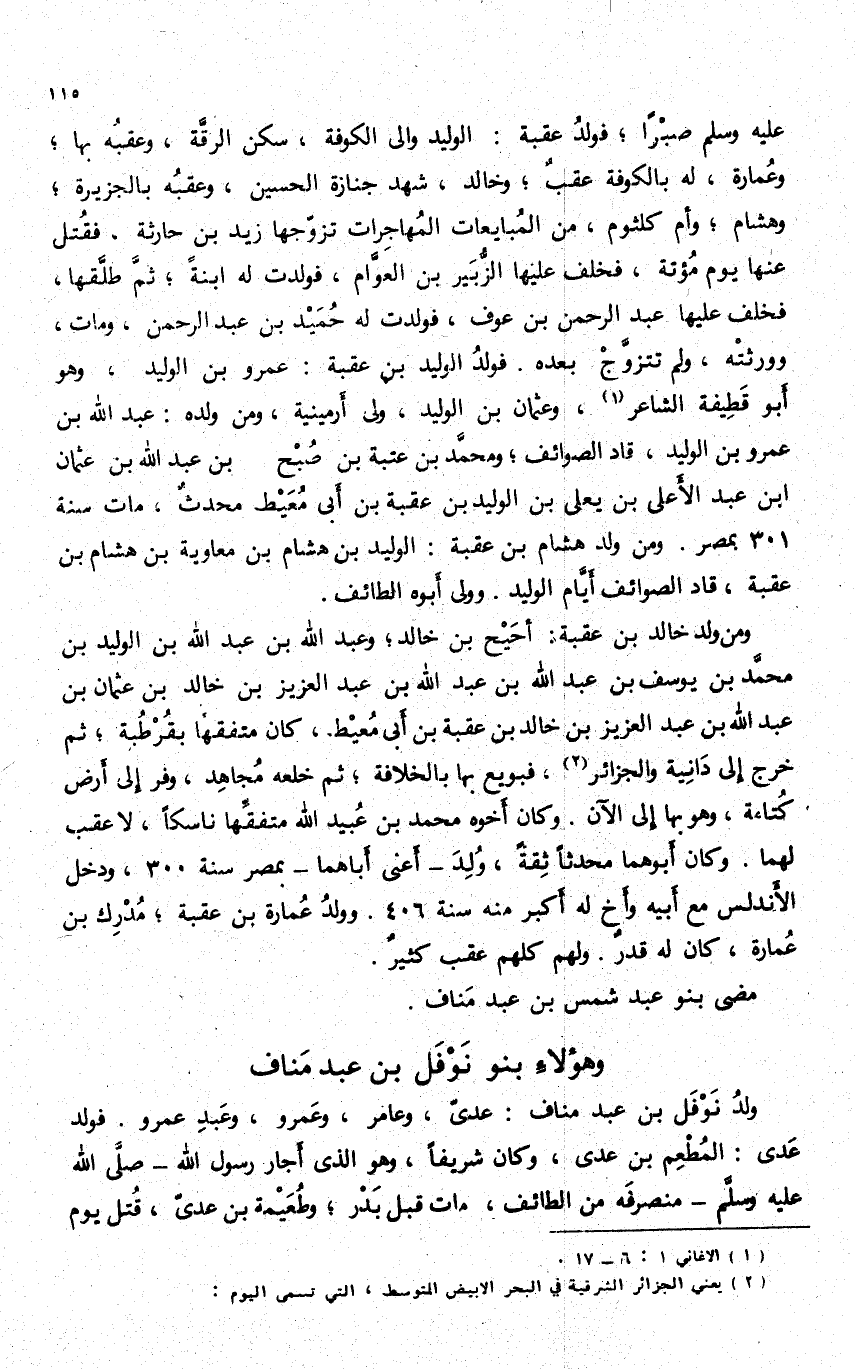 ١١٥
عليه وسلم صبْرًا ؛ فولدُ عقبة : الوليد والى الكوفة ، سكن الرقَّة ، وعقبُه بها ؛
وعُمارة ، له بالكوفة عقبٌ ؛ وخالد ، شهد جنازة الحسين ، وعقبُه بالجزيرة ؛
وهشام ؛ وأم كلثوم ، من المُبايعات المُهاجِرات تزوّجها زيد بن حارثة . فقُتل
عنها يوم مُؤتة ، فخلف عليها الزُّبَير بن العوَّام ، فولدت له ابنةً ؛ ثمَّ طلَّقها ،
فخلف عليها عبد الرحمن بن عوف ، فولدت له حُمَيْد بن عبد الرحمن ، ومات ،
وورثتْه ، ولم تتزوَّجْ بعده . فولدُ الوليد بن عقبة : عمرو بن الوليد ، وهو
أبو قَطِيفة الشاعر(١) ، وعثمان بن الوليد ، ولى أرمينية ، ومن ولده : عبد الله بن
عمرو بن الوليد ، قاد الصوائف ؛ ومحمَّد بن عتبة بن صُبْح بن عبد الله بن عثمان
ابن عبد الأعلى بن يعلى بن الوليد بن عقبة بن أبى مُعَيْط محدثٌ ، مات سنة
٣٠١ بمصر . ومن ولد هشام بن عقبة : الوليد بن هشام بن معاوية بن هشام بن
عقبة ، قاد الصوائف أيَّام الوليد . وولى أبوه الطائف .
ومن ولد خالد بن عقبة : أحَيْح بن خالد ؛ وعبد الله بن عبد الله بن الوليد بن
محمَّد بن يوسف بن عبد الله بن عبد الله بن عبد العزيز بن خالد بن عثمان بن
عبد الله بن عبد العزيز بن خالد بن عقبة بن أبى مُعيْط ، كان متفقهًا بقُرْطُبة ؛ ثم
خرج إلى دَانِية والجزائر(٢) ، فبويع بها بالخلافة ؛ ثم خلعه مُجاهِد ، وفر إلى أرض
كُتامة ، وهو بها إلى الآن . وكان أخوه محمد بن عُبيد الله متفقِّهًا ناسكاً ، لا عقب
لهما . وكان أبوهما محدثاً ثِقةً ، وُلِدَ – أعنى أباهما – بمصر سنة ٣٠٠ ، ودخل
الأندلس مع أبيه وأخ له أكبر منه سنة ٤٠٦ . وولدُ عُمارة بن عقبة ؛ مُدْرِك بن
عُمارة ، كان له قدرٌ . ولهم كلهم عقب كثيرٌ .
مضى بنو عبد شمس بن عبد مَناف .
وهؤلاء بنو نَوْفَل بن عبد مَناف
ولدُ نَوْفَل بن عبد مناف : عدىّ ، وعامر ، وعَمرو ، وعَبدِ عمرو . فولد
عَدى : المُطْعِم بن عدى ، وكان شريفاً ، وهو الذى أجار رسول الله – صلَّى الله
عليه وسلَّم – منصرفَه من الطائف ، مات قبل بَدْر ؛ وطُعَيْمة بن عدىّ ، قُتل يوم
(١) الاغاني ١ : ٦ – ١٧ .
(٢) يعني الجزائر الشرقية في البحر الابيض المتوسط ، التي تسمى اليوم :